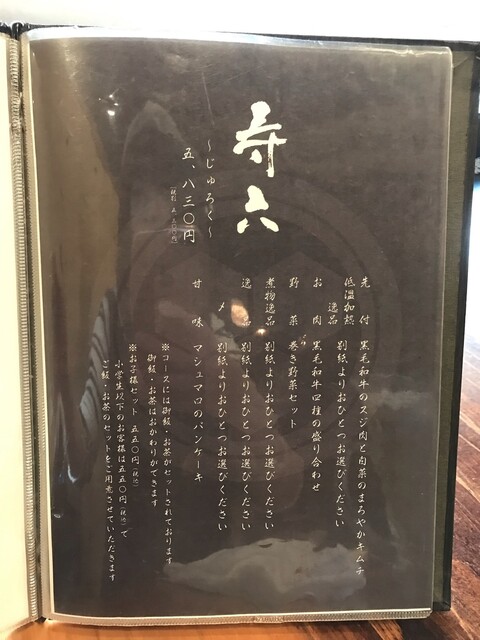 寿六
〜じゅろく〜
五、八三〇円
(税別 五、三〇〇円)
先付 黒毛和牛のスジ肉と白菜のまろやかキムチ
低温加熱逸品 別紙よりおひとつお選びください
お肉 黒毛和牛四種の盛り合わせ
野菜 巻き野菜セット
煮物逸品 別紙よりおひとつお選びください
逸品 別紙よりおひとつお選びください
〆 別紙よりおひとつお選びください
甘味 マシュマロのパンケーキ
※コースには御飯・お茶がセットされております
御飯・お茶はおかわりができます
※お子様セット 五五〇円(税込)
小学生以下のお客様は五五〇円(税込)で
ご飯・お茶のセットをご用意させていただきます